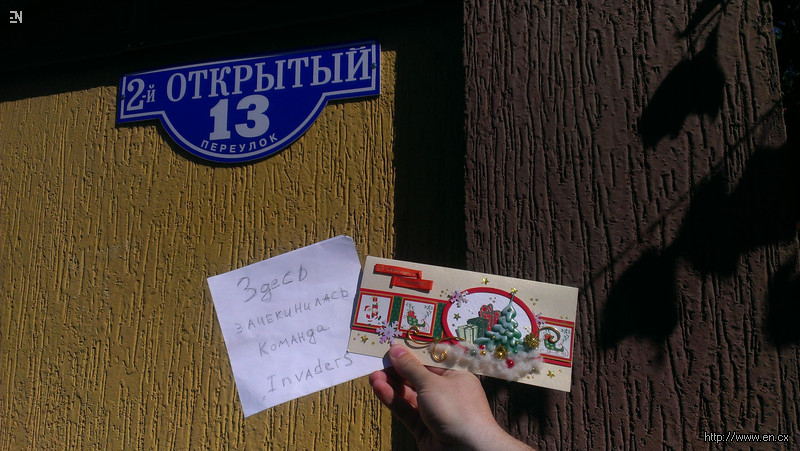 EN
2-й ОТКРЫТЫЙ
13
ПЕРЕУЛОК
Здесь
зачекинилась
команда
Invaders
http://www.en.cx